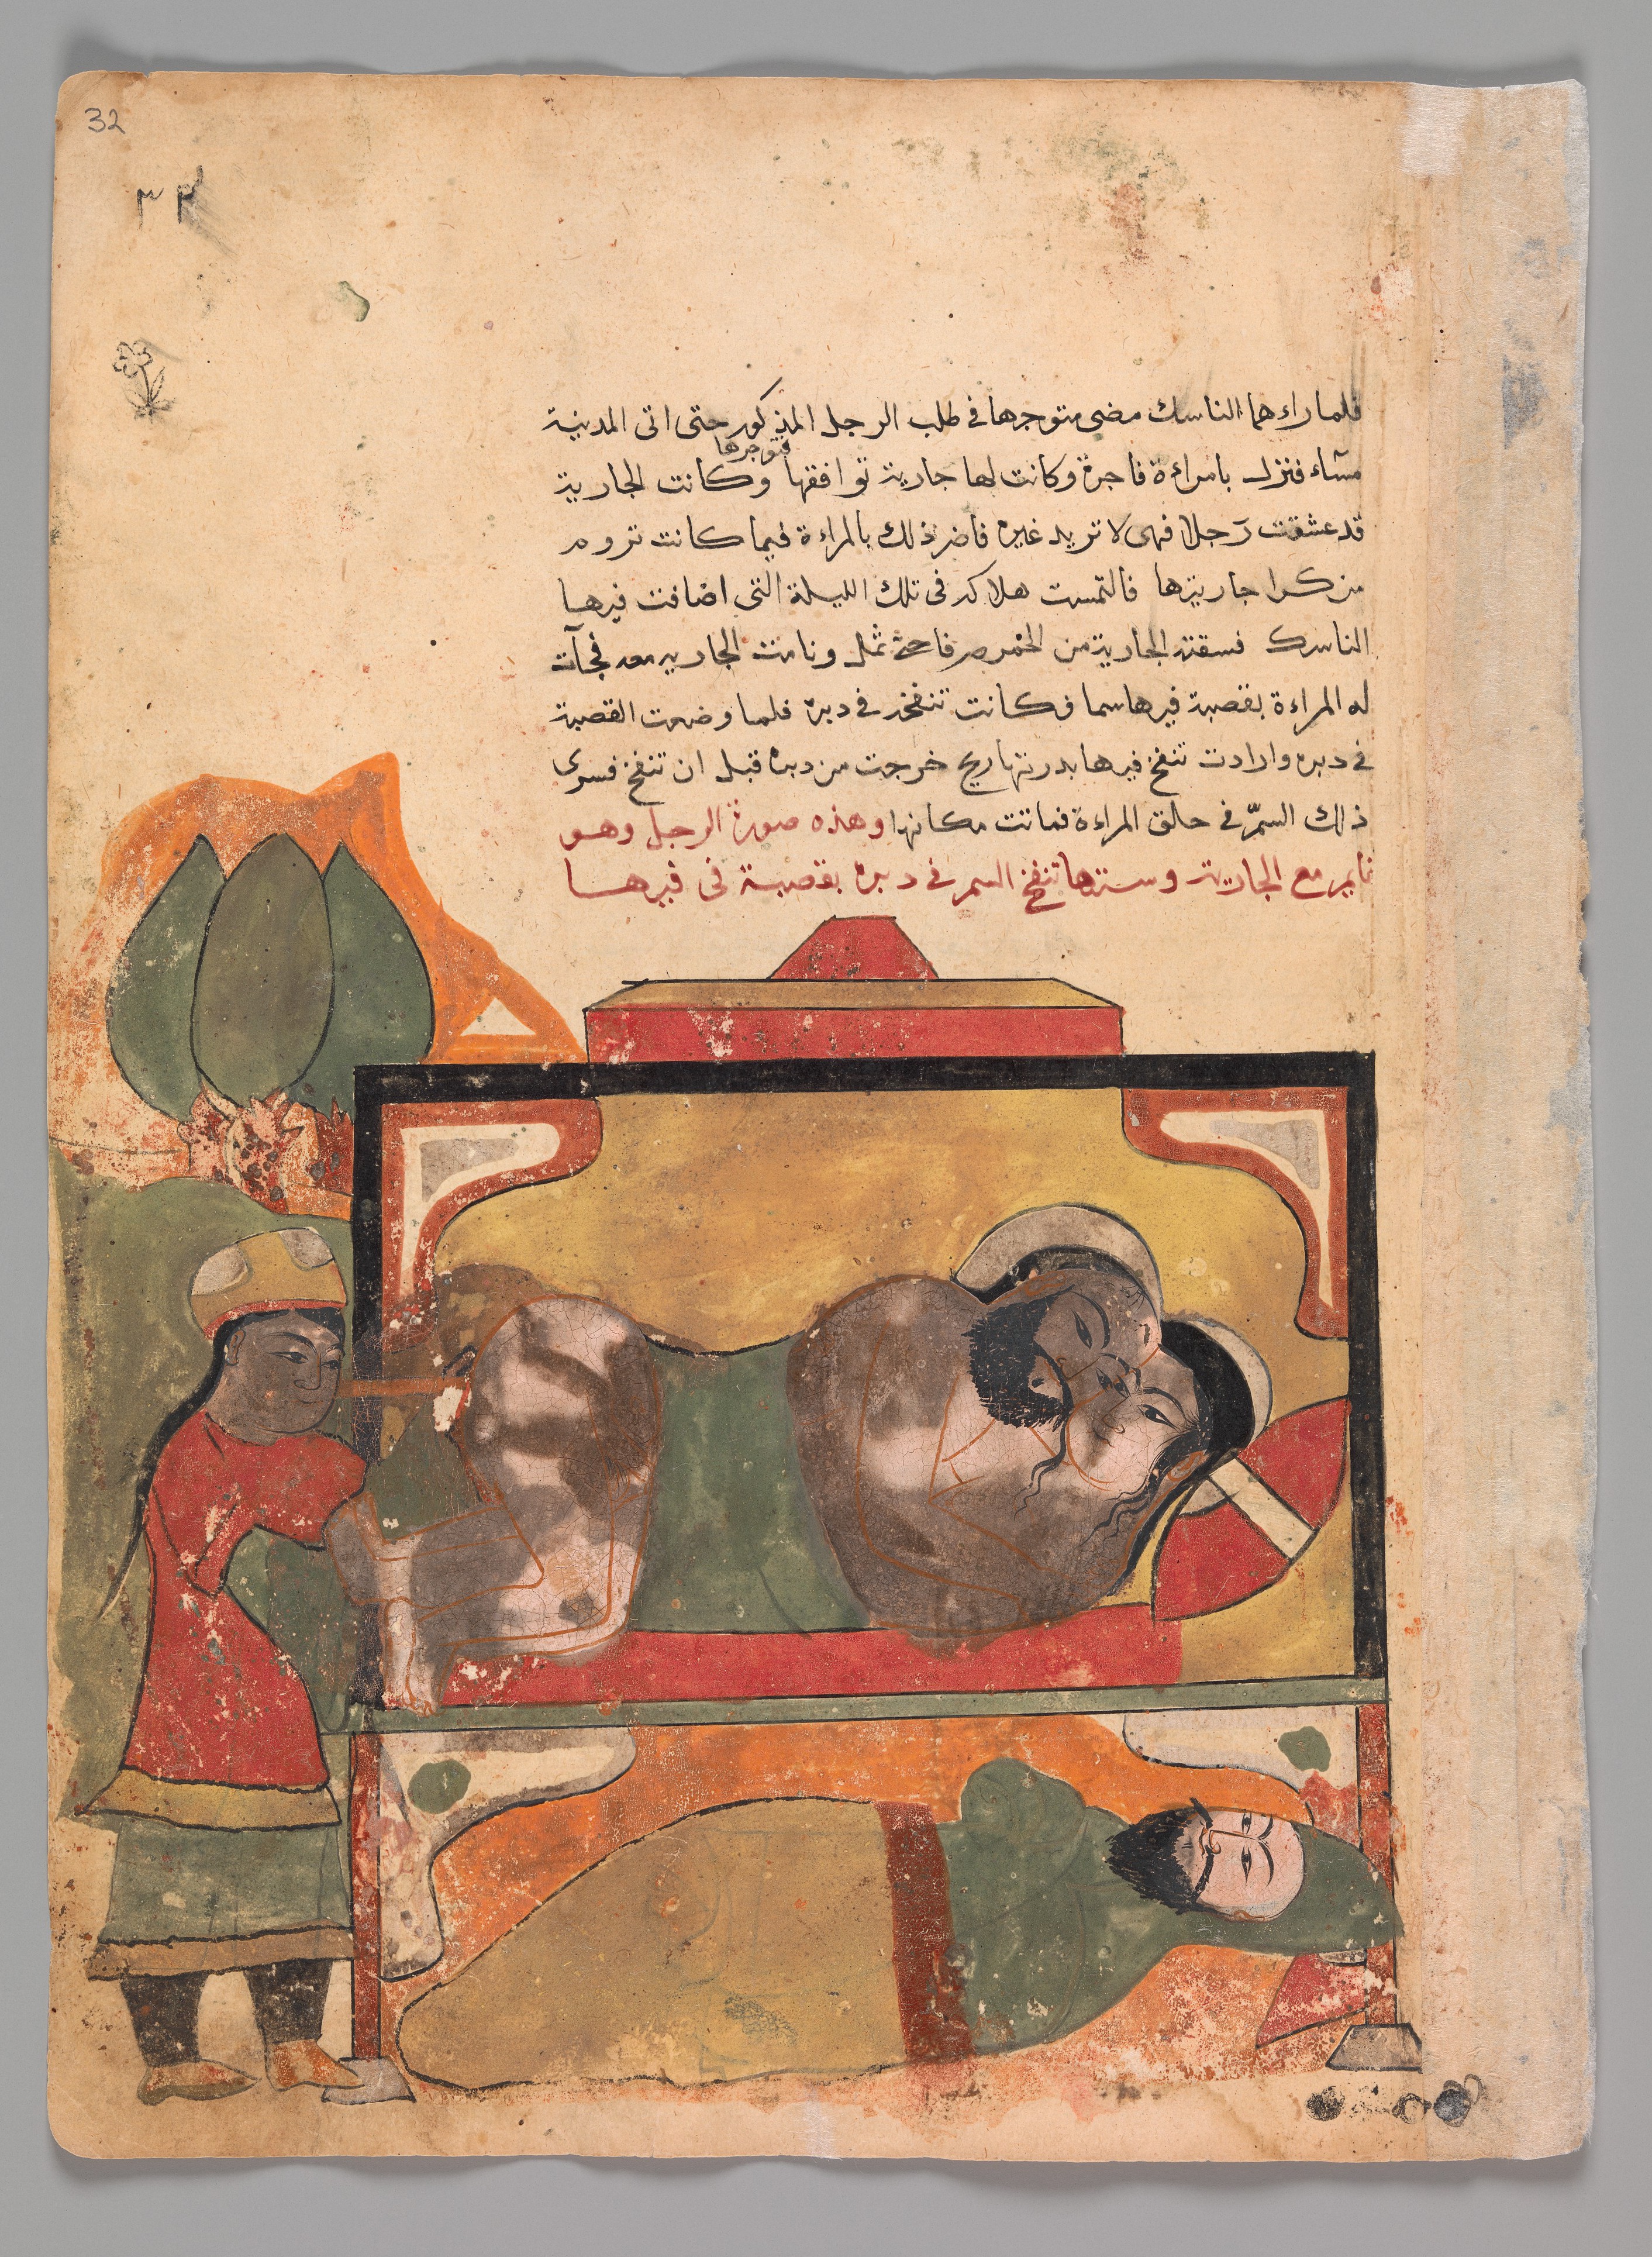 32
٣٢
فلما راءهما الناسك مضى متوجها في طلب الرجل المذكور حتى اتى المدينة
متوجها
مسآء فنزل بامراءة فاجرة وكانت لها جارية توافقها وكانت الجارية
قد عشقت رجلا فهى لا تريد غيره فاضر ذلك بالمراءة فيما كانت تروم
من كرا جاريتها فالتمست هلاكه فى تلك الليلة التى اضافت فيها
الناسك فسقته الجارية من الخمر صرفا حتى ثمل ونامت الجاريه معه فجآت
له المراءة بقصبة فيها سما فكانت تنفخه في دبره فلما وضعت القصبة
في دبره وارادت تنفخ فيها بدرتها ريح خرجت من دبره قبل ان تنفخ فسرى
ذلك السمّ في حلق المراءة فماتت مكانها وهذه صورة الرجل وهو
نايم مع الجارية وستها تنفخ السم في دبره بقصبة فى فيها